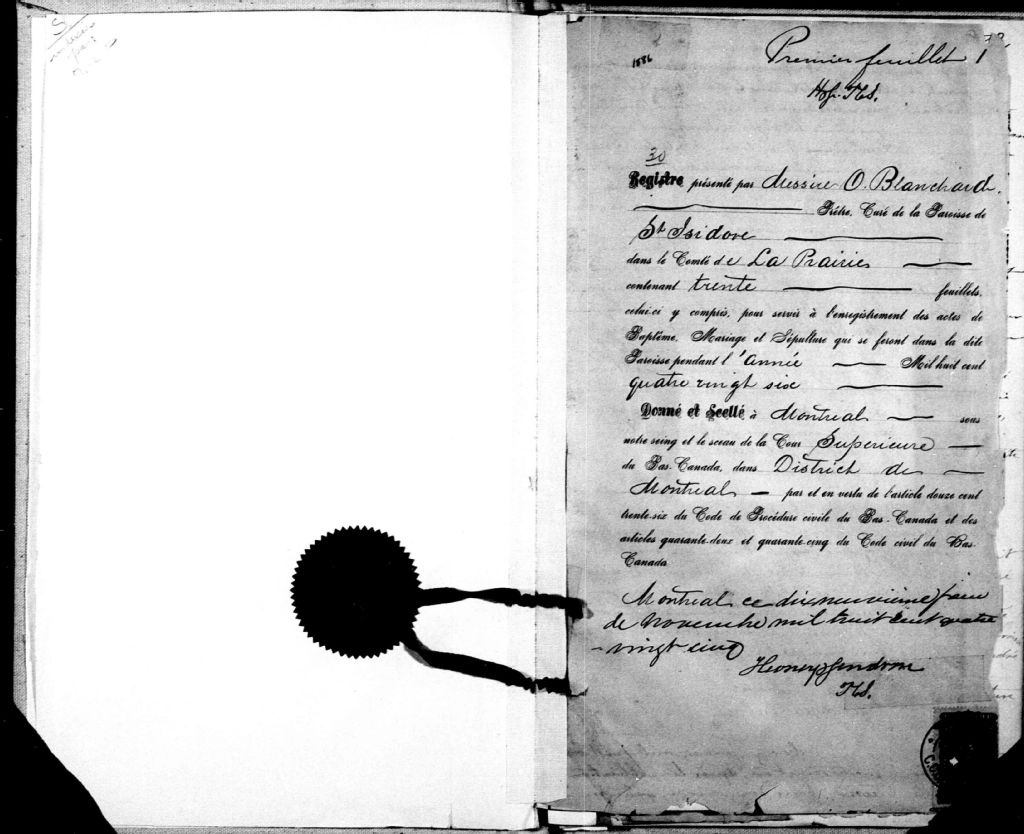 1886
Premier feuillet 1
30
Registre présenté par Messire O. Blanchard.
Prêtre, Curé de la Paroisse de
St Isidore
dans le Comté de La Prairie
contenant trente feuillets,
celui-ci y compris, pour servir à l'enregistrement des actes de
Baptême, Mariage et Sépulture qui se feront dans la dite
Paroisse pendant l'année Mil huit cent
quatre vingt six
Donné et Scellé à Montreal sous
notre seing et le sceau de la Cour Superieure
du Bas-Canada, dans District de
Montreal par et en vertu de l'article douze cent
trente-six du Code de Procédure civile du Bas-Canada et des
articles quarante-deux et quarante-cinq du Code civil du Bas-
Canada
Montreal ce dixneuvieme jour
de Novembre mil huit cent quatre
-vingt cinq